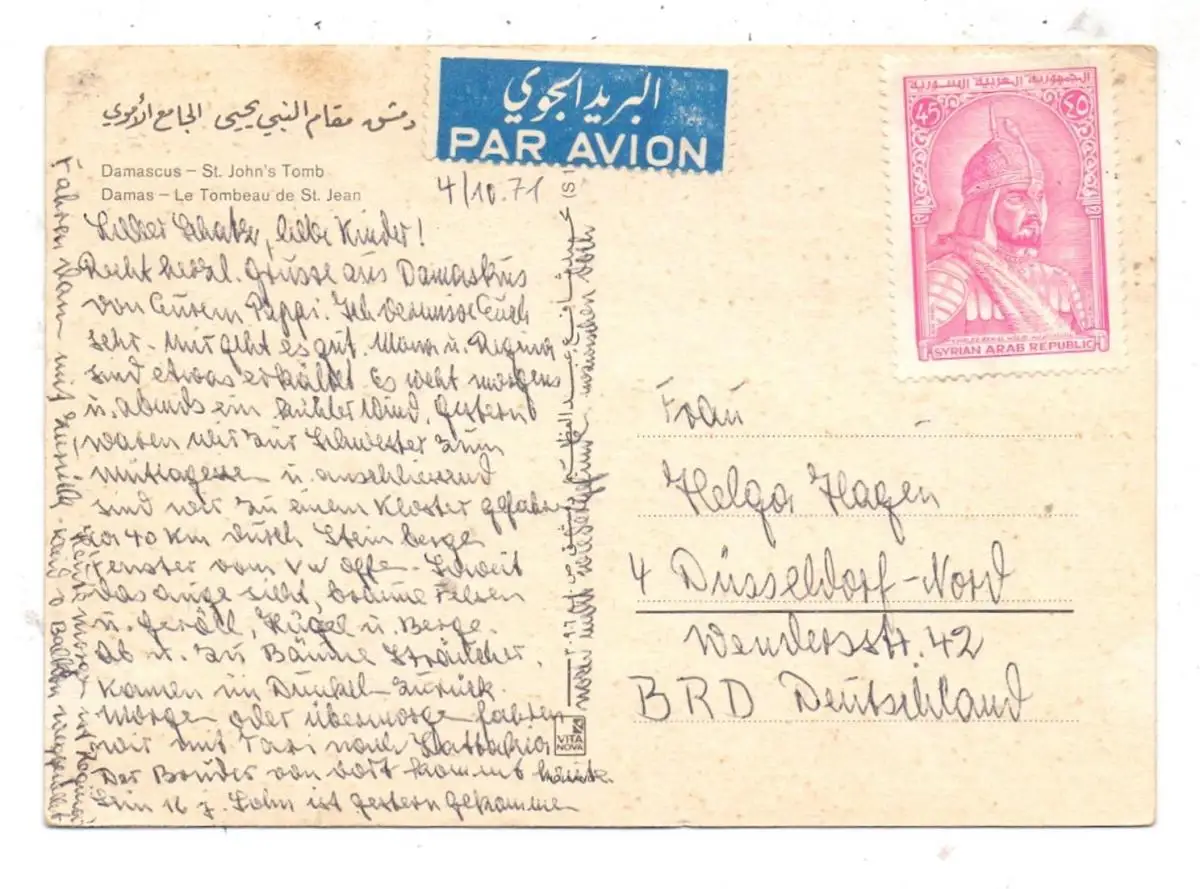 دمشق مقام النبي يحيى الجامع الأموي
Damascus – St. John's Tomb
Damas – Le Tombeau de St. Jean
البريد الجوي
PAR AVION
4/10.71
الجمهورية العربية السورية
45
٤٥
SYRIAN ARAB REPUBLIC
Lieber Schatz, liebe Kinder!
Recht herzl. Grüsse aus Damaskus
von Eurem Pappi. Ich vermisse Euch
sehr. Mir geht es gut. Mona u. Regina
sind etwas erkältet. Es weht morgens
u. abends ein kühler Wind. Gestern
waren wir zur Schwester zum
Mittagessen u. anschliessend
sind wir zu einem Kloster gefahren
ca 40 km durch Steinberge
Fenster vom VW offen. Soweit
das Auge sieht, braune Felsen
u. Geröll, Hügel u. Berge.
Ab u. zu Bäume Sträucher.
Kamen im Dunkel zurück.
Morgen oder übermorgen fahren
wir mit Taxi nach Lattakia
Der Bruder von dort kommt heute.
Sein 16 j. Sohn ist gestern gekommen
Fahren dann mit zurück.
Balkon
VITA NOVA
Frau
Helga Hagen
4 Düsseldorf-Nord
Wendersstr. 42
BRD Deutschland